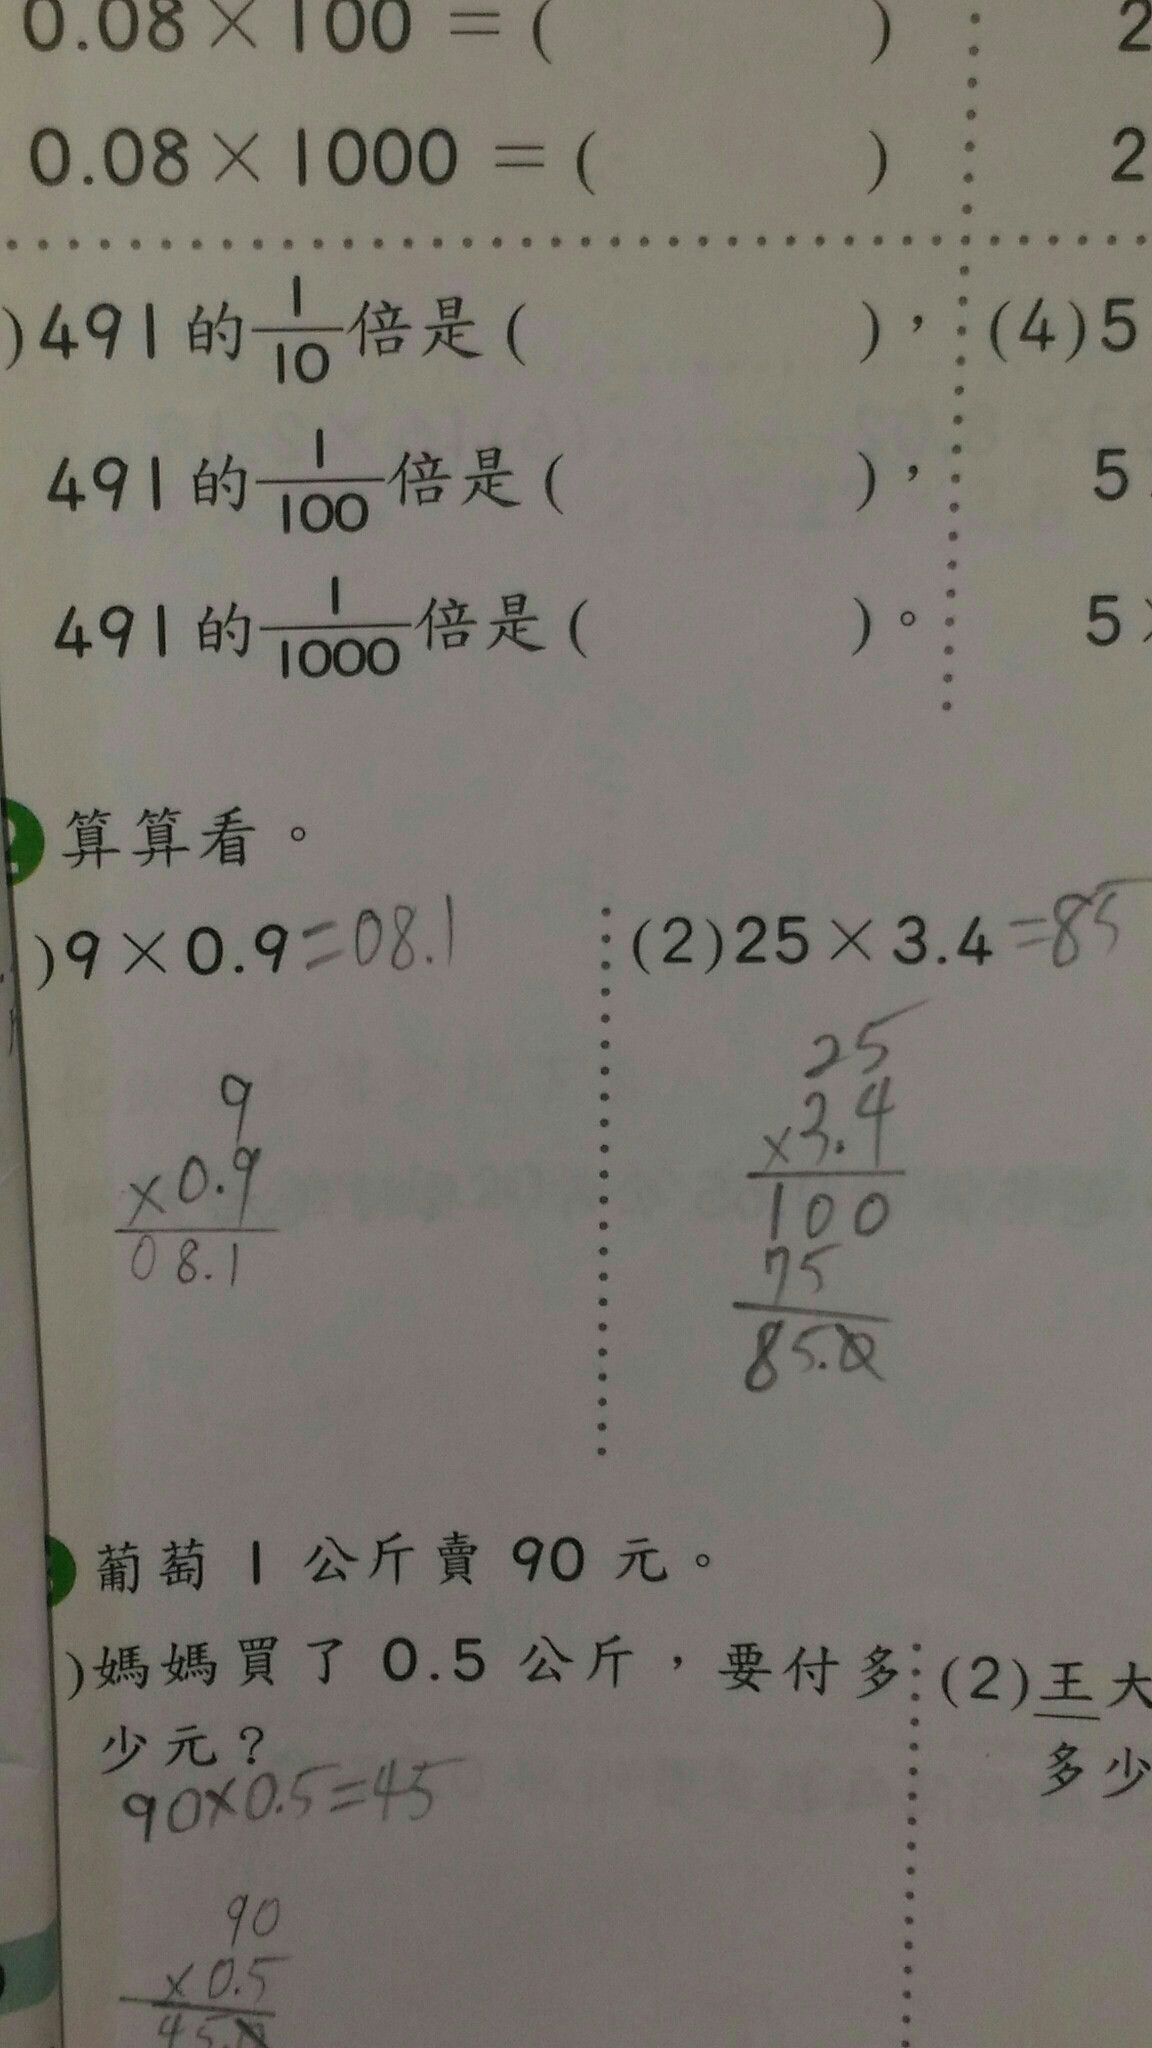 0.08×100=(    )
2
0.08×1000=(    )
2
)491的1/10倍是(    )，
(4)5
491的1/100倍是(    )，
5
491的1/1000倍是(    )。
5×
2 算算看。
)9×0.9=08.1
(2)25×3.4=85
9
×0.9
08.1
25
×3.4
100
75
85.0
葡萄 1 公斤賣 90 元。
)媽媽買了 0.5 公斤，要付多
少元？
90×0.5=45
90
×0.5
45.0
(2)王大
多少